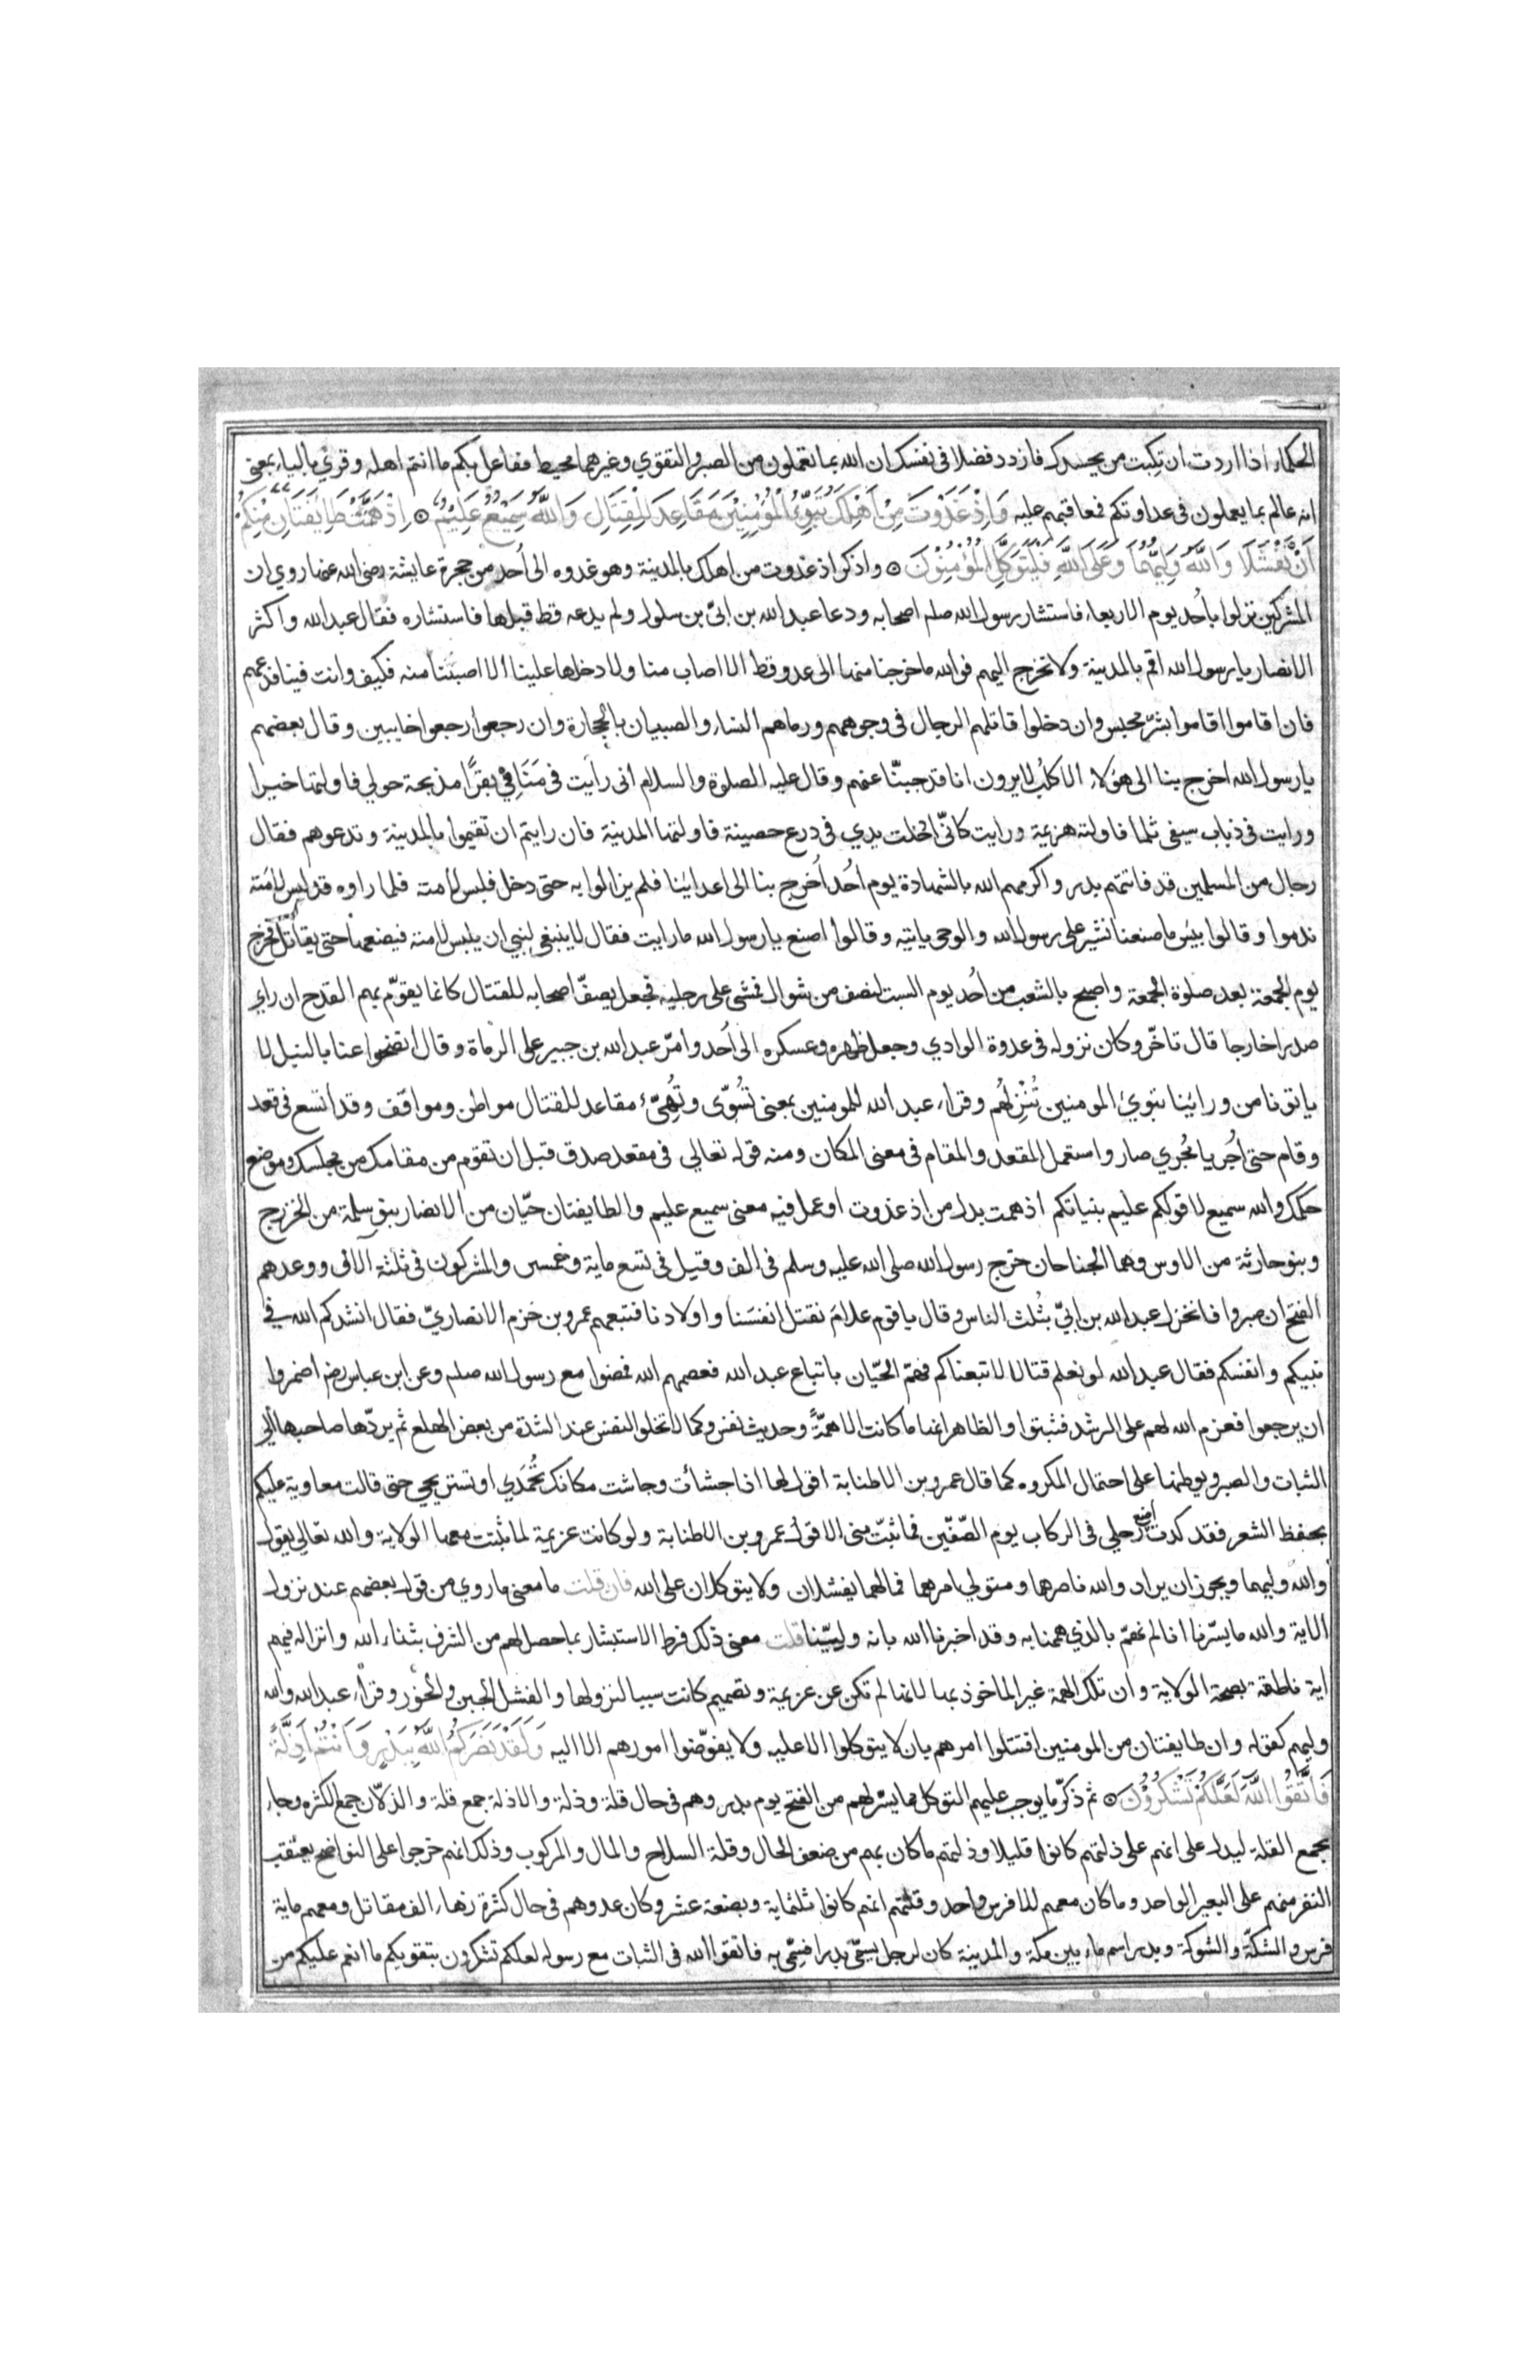 الحكماء اذا اردت ان تكبت من يحسدك فازدد فضلا فى نفسك ان الله بما تعملون من الصبر والتقوي وغيرهما محيط ففاعل بكم ما انتم اهله وقرئ بالياء بمعنى
انه عالم بما يعملون فى عداوتكم فمعاقبهم عليه وَاِذْ غَدَوْتَ مِنْ اَهْلِكَ تُبَوِّئُ الْمُؤْمِنِيْنَ مَقَاعِدَ لِلْقِتَالِ وَاللَّهُ سَمِيْعٌ عَلِيْمٌ ۞ اِذْ هَمَّتْ طَايِفَتَانِ مِنْكُمْ
اَنْ تَفْشَلَا وَاللَّهُ وَلِيُّهُمَا وَعَلَى اللَّهِ فَلْيَتَوَكَّلِ الْمُؤْمِنُوْنَ ۞ واذكر اذ غدوت من اهلك بالمدينة وهو غدوه الى اُحد من حجرة عايشة رضى الله عنها روي ان
المشركين نزلوا باُحد يوم الاربعاء فاستشار رسول الله صلم اصحابه ودعا عبد الله بن ابىّ بن سلول ولم يدعه قط قبلها فاستشاره فقال عبد الله واكثر
الانصار يا رسول الله اقم بالمدينة ولا تخرج اليهم فوالله ما خرجنا منها الى عدو قط الا اصاب منا ولا دخلها علينا الا اصبنا منه فكيف وانت فينا فدعهم
فان اقاموا اقاموا بشرّ محبس وان دخلوا قاتلهم الرجال فى وجوههم ورماهم النساء والصبيان بالحجارة وان رجعوا رجعوا خايبين وقال بعضهم
يا رسول الله اخرج بنا الى هؤلاء الاكلُب لا يرون انا قد جبنّا عنهم وقال عليه الصلوة والسلام انى رأيت فى مَنَامِي بقرًا مذبحة حولي فاولتها خيرا
ورايت فى ذباب سيفى ثلما فاولته هزيمة ورايت كانّى ادخلت يدي فى درع حصينة فاولتها المدينة فان رايتم ان تقيموا بالمدينة وتدعوهم فقال
رجال من المسلمين قد فاتتهم بدر واكرمهم الله بالشهادة يوم اُحُد اُخرج بنا الى اعدائنا فلم يزالوا به حتى دخل فلبس لامته فلما راوه قد لبس لامته
ندموا وقالوا بئس ما صنعنا نشير على رسول الله والوحى ياتيه وقالوا اصنع يا رسول الله ما رايت فقال لا ينبغى لنبي ان يلبس لامته فيضعها حتى يقاتل فخرج
يوم الجمعة بعد صلوة الجمعة واصبح بالشعب من اُحد يوم السبت لنصف من شوال فمشى على رجليه فجعل يصفّ اصحابه للقتال كانما يقوّم بهم القدح ان راي
صدرا خارجا قال تاخّر وكان نزوله فى عدوة الوادي وجعل ظهره وعسكره الى اُحد وامّر عبد الله بن جبير على الرماة وقال انضحوا عنا بالنبل لا
ياتونا من ورائنا تبوئ المومنين تُنْزِلُهُم وقراء عبد الله للمومنين بمعنى تُسَوِّى وتُهَيِّئ مقاعد للقتال مواطن ومواقف وقد اتسع فى قعد
وقام حتى اُجريا مُجري صار واستعمل المقعد والمقام فى معنى المكان ومنه قوله تعالى فى مقعد صدق قبل ان تقوم من مقامك من مجلسك وموضع
حكمك والله سميع لاقوالكم عليم بنياتكم اذ همت بدل من اذ غدوت او عمل فيه معنى سميع عليم والطايفتان حيّان من الانصار بنو سلمة من الخزرج
وبنو حارثة من الاوس وهما الجناحان خرج رسول الله صلى الله عليه وسلم فى الف وقيل فى تسع ماية وخمسين والمشركون فى ثلثة الاف ووعدهم
الفتح ان صبروا فانخزل عبد الله بن ابيّ بثُلث الناس وقال يا قوم علامَ نقتل انفسَنا واولادنا فتبعهم عمرو بن حزم الانصاريّ فقال انشدكم الله في
نبيكم وانفسكم فقال عبد الله لو نعلم قتالا لاتبعناكم فهمّ الحيّان باتباع عبد الله فعصمهم الله فمضوا مع رسول الله صلم وعن ابن عباس رضه اضمروا
ان يرجعوا فعزم الله لهم على الرشد فثبتوا والظاهر انها ما كانت الا همّةً وحديث نفس وكما لا تخلوا النفس عند الشدة من بعض الهلع ثم يردّها صاحبها الى
الثبات والصبر ويوطنها على احتمال المكروه كما قال عمرو بن الاطنابة اقول لها اذا جشأت وجاشت مكانك تُحْمَدي او تستريحي حتى قالت معاوية عليكم
بحفظ الشعر فقد كدت اضع رجلي فى الركاب يوم الصّفّين فما ثبّت منى الا قول عمرو بن الاطنابة ولو كانت عزيمة لما ثبتت معها الولاية والله تعالى يقول
والله وليهما ويجوز ان يراد والله ناصرهما ومتولي امرهما فما لهما يفشلان ولا يتوكلان على الله فان قلت ما معنى ما روي من قول بعضهم عند نزول
الاية والله ما يسّرنا انا لم نهمّ بالذي هممنا به وقد اخبرنا الله بانه وليّنا قلت معنى ذلك فرط الاستبشار بما حصل لهم من الشرف بثناء الله وانزاله فيهم
اية ناطقة بصحة الولاية وان تلك الهمة غير الماخوذ بها لانها لم تكن عن عزيمة وتصميم كانت سببا لنزولها والفشل الجبن والخور وقراء عبد الله والله
وليهم كقوله وان طايفتان من المومنين اقتتلوا امرهم بان لا يتوكلوا الا عليه ولا يفوّضوا امورهم الا اليه وَلَقَدْ نَصَرَكُمُ اللَّهُ بِبَدْرٍ وَاَنْتُمْ اَذِلَّةٌ
فَاتَّقُوا اللَّهَ لَعَلَّكُمْ تَشْكُرُوْنَ ۞ ثم ذكّر ما يوجب عليهم التوكل مما يسّر لهم من الفتح يوم بدر وهم فى حال قلة وذلة والاذلة جمع قلة والذلّان جمع الكثره وجاء
بجمع القلة ليدل على انهم على ذلتهم كانوا قليلا وذلتهم ما كان بهم من ضعف الحال وقلة السلاح والمال والمركوب وذلك انهم خرجوا على النواضح يعتقب
النفر منهم على البعير الواحد وما كان معهم الا فرس واحد وقلتهم انهم كانوا ثلثماية وبضعة عشر وكان عدوهم فى حال كثرة زهاء الف مقاتل ومعهم ماية
فرس والشكّة والشوكة وبدر اسم ماء بين مكة والمدينة كان لرجل يسمّى بدرا فسُمّى به فاتقوا الله فى الثبات مع رسوله لعلكم تشكرون بتقويكم ما انعم عليكم من